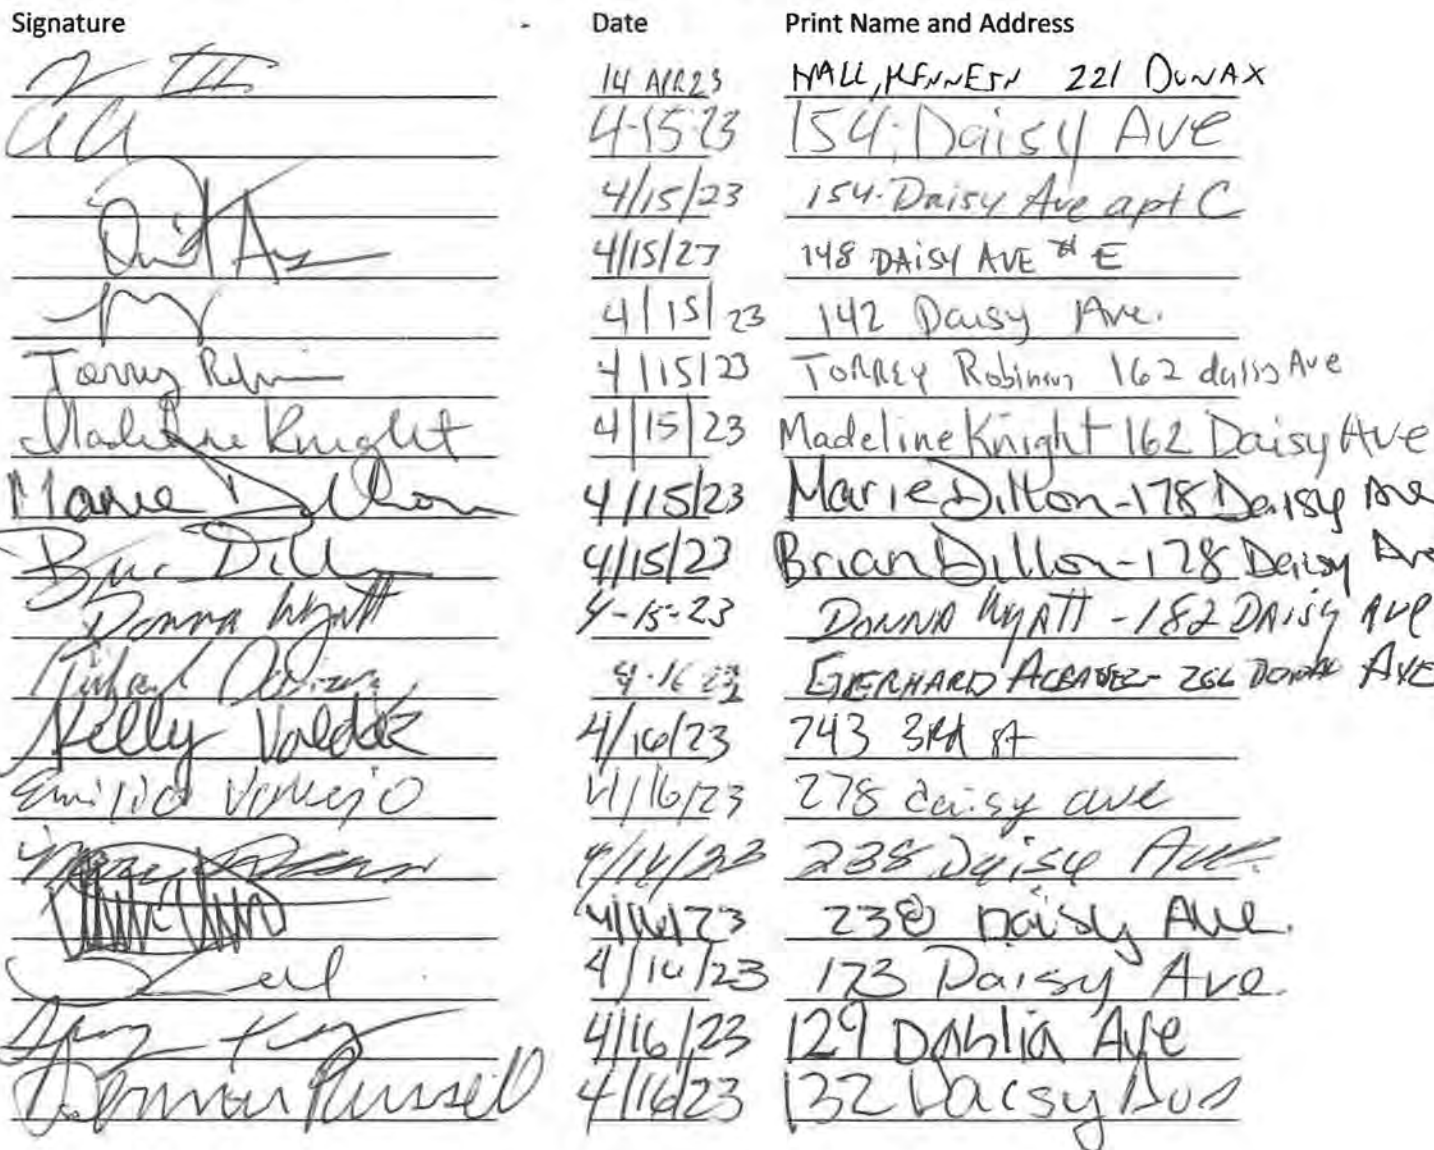 Signature Date Print Name and Address
14 APR 23 HALL, KENNETH 221 DONAX
4-15-23 154 Daisy Ave
4/15/23 154 Daisy Ave apt C
4/15/23 148 DAISY AVE # E
4/15/23 142 Daisy Ave.
Torrey Robinson 4/15/23 TORREY Robinson 162 daisy Ave
Madeline Knight 4/15/23 Madeline Knight 162 Daisy Ave
Marie Dillon 4/15/23 Marie Dillon - 178 Daisy Ave
Brian Dillon 4/15/23 Brian Dillon - 178 Daisy Ave
Donna Wyatt 4-15-23 DONNA WYATT - 182 DAISY AVE
EBERHARD AVE
Kelly Valdez 4/16/23 743 3RD St
Emilio 4/16/23 278 daisy ave
4/16/23 238 Daisy Ave.
4/16/23 238 Daisy Ave.
4/16/23 173 Daisy Ave.
4/16/23 129 Dahlia Ave
Russell 4/16/23 132 Daisy Ave